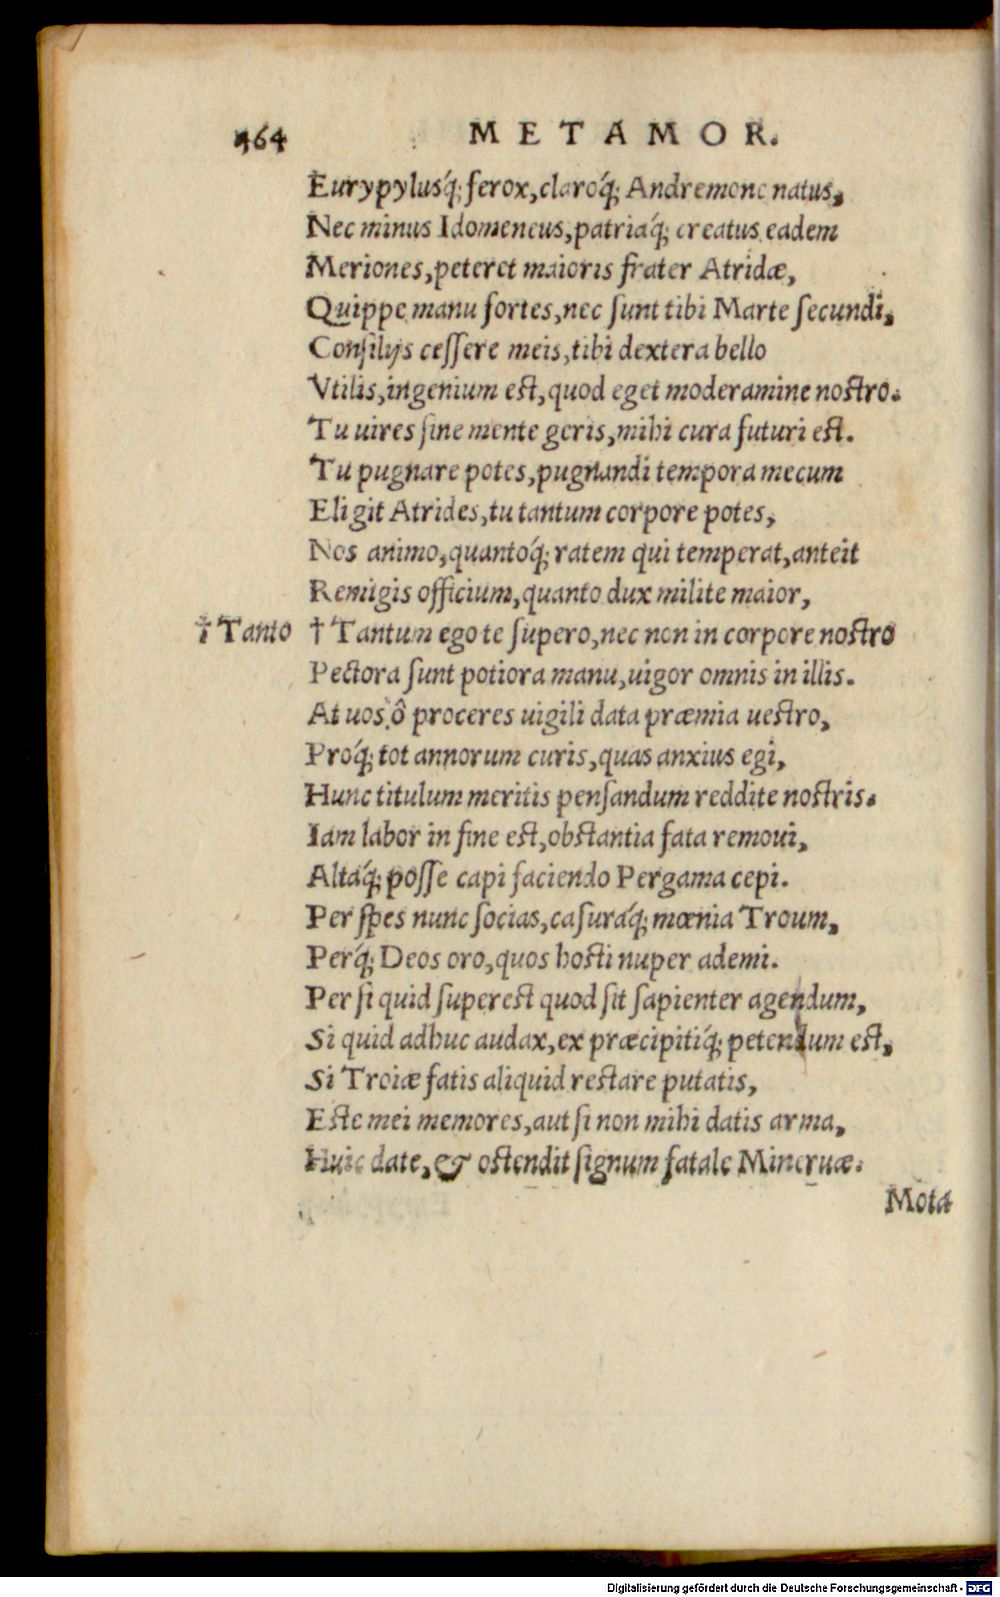 464 METAMOR.
Eurypylusq́; ferox, claroq́; Andremone natus,
Nec minus Idomeneus, patriaq́; creatus eadem
Meriones, peteret maioris frater Atridæ,
Quippe manu fortes, nec sunt tibi Marte secundi,
Consilijs cessere meis, tibi dextera bello
Vtilis, ingenium est, quod eget moderamine nostro.
Tu uires sine mente geris, mihi cura futuri est.
Tu pugnare potes, pugnandi tempora mecum
Eligit Atrides, tu tantum corpore potes,
Nos animo, quantoq́; ratem qui temperat, anteit
Remigis officium, quanto dux milite maior,
† Tanto † Tantum ego te supero, nec non in corpore nostro
Pectora sunt potiora manu, uigor omnis in illis.
At uos ô proceres uigili data præmia uestro,
Proq́; tot annorum curis, quas anxius egi,
Hunc titulum meritis pensandum reddite nostris.
Iam labor in fine est, obstantia fata remoui,
Altaq́; posse capi faciendo Pergama cepi.
Per spes nunc socias, casuraq́; mœnia Troum,
Perq́; Deos oro, quos hosti nuper ademi.
Per si quid superest quod sit sapienter agendum,
Si quid adhuc audax, ex præcipitiq́; petendum est,
Si Troiæ fatis aliquid restare putatis,
Este mei memores, aut si non mihi datis arma,
Huic date, & ostendit signum fatale Mineruæ.
Mota
Digitalisierung gefördert durch die Deutsche Forschungsgemeinschaft - DFG